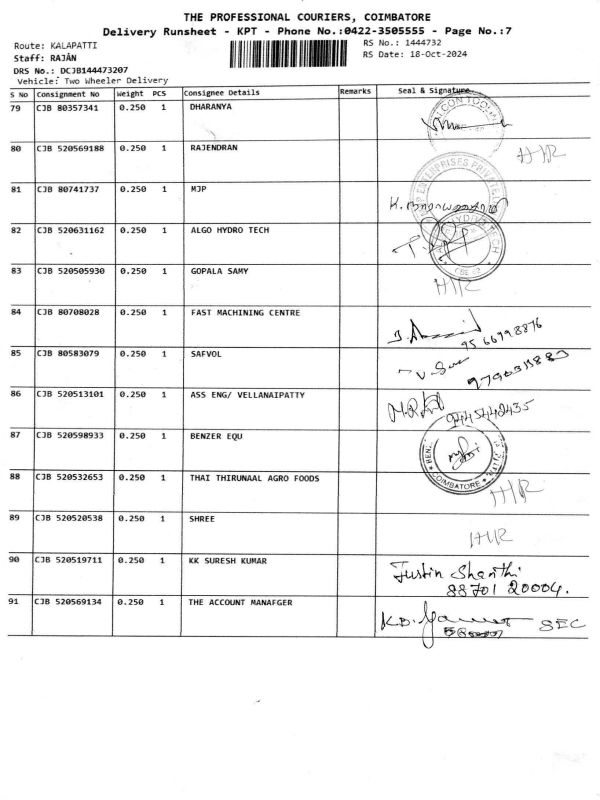 THE PROFESSIONAL COURIERS, COIMBATORE
Delivery Runsheet - KPT - Phone No.:0422-3505555 - Page No.:7
Route: KALAPATTI RS No.: 1444732
Staff: RAJAN RS Date: 18-Oct-2024
DRS No.: DCJB144473207
Vehicle: Two Wheeler Delivery
S No Consignment No Weight PCS Consignee Details Remarks Seal & Signature
79 CJB 80357341 0.250 1 DHARANYA
80 CJB 520569188 0.250 1 RAJENDRAN HIR
81 CJB 80741737 0.250 1 MJP ENTERPRISES
82 CJB 520631162 0.250 1 ALGO HYDRO TECH HYDRO TECH
83 CJB 520505930 0.250 1 GOPALA SAMY HIR
84 CJB 80708028 0.250 1 FAST MACHINING CENTRE
85 CJB 80583079 0.250 1 SAFVOL
86 CJB 520513101 0.250 1 ASS ENG/ VELLANAIPATTY
87 CJB 520598933 0.250 1 BENZER EQU COIMBATORE
88 CJB 520532653 0.250 1 THAI THIRUNAAL AGRO FOODS HIR
89 CJB 520520538 0.250 1 SHREE HIR
90 CJB 520519711 0.250 1 KK SURESH KUMAR Justin Shanthi
88701 20004.
91 CJB 520569134 0.250 1 THE ACCOUNT MANAFGER SEC